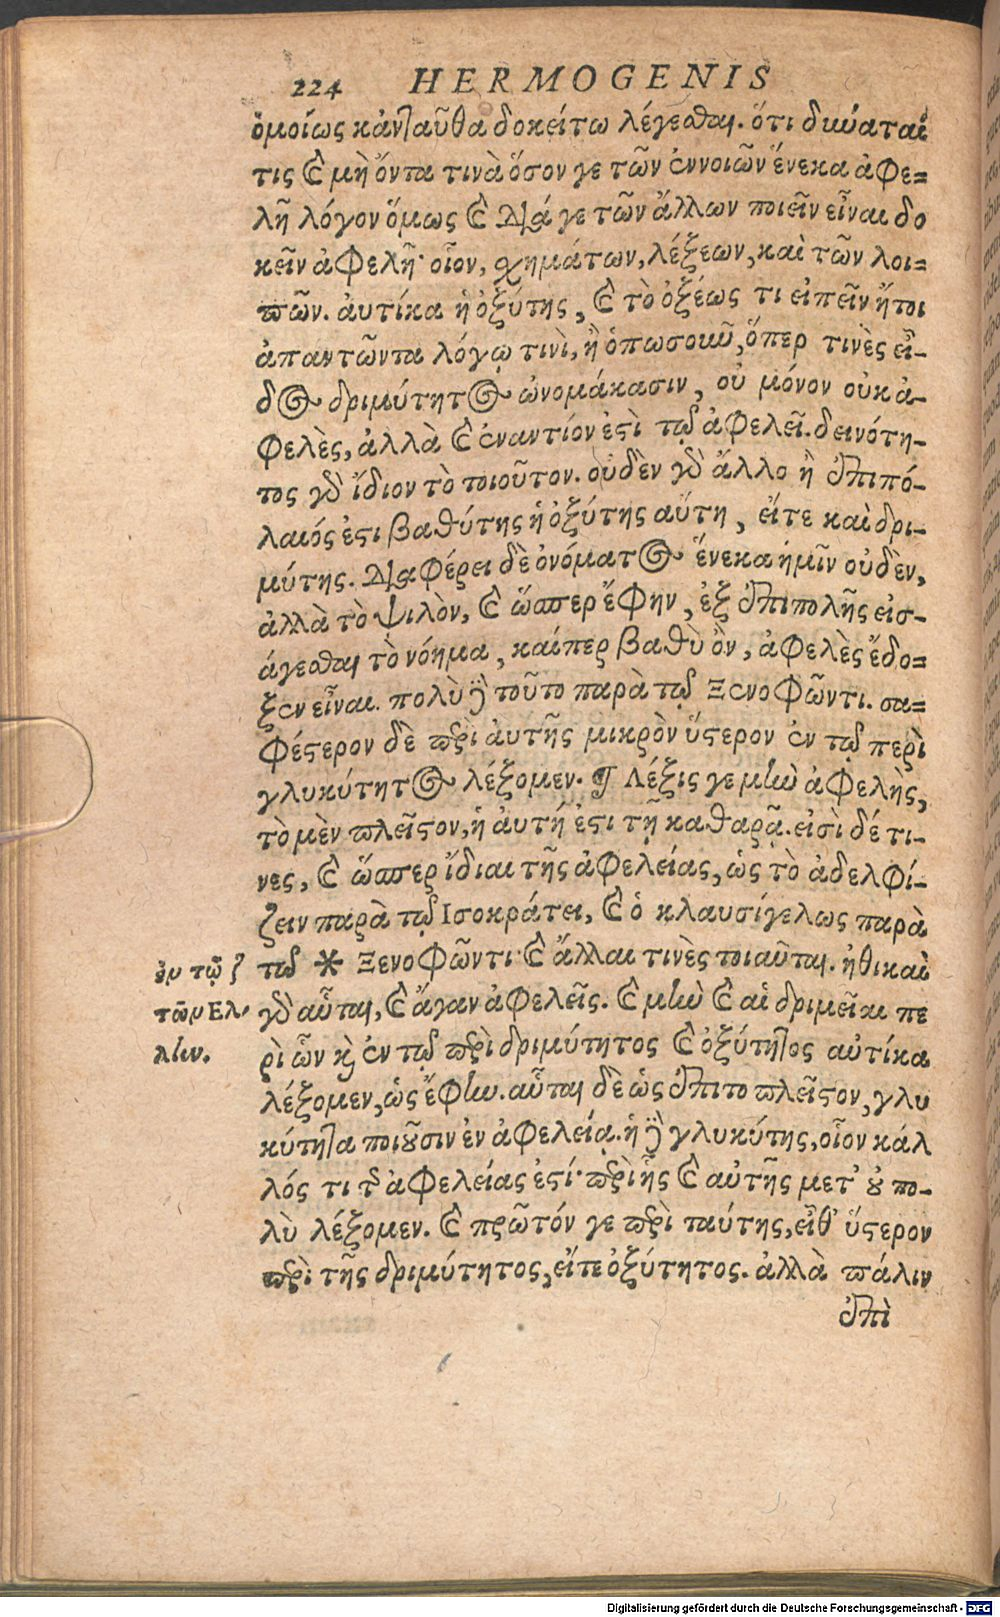 224 HERMOGENIS
ὁμοίως κἀνταῦθα δοκείτω λέγεσθαι. ὅτι δύναταί
τις καὶ μὴ ὄντα τινὰ ὅσον γε τῶν ἐννοιῶν ἕνεκα ἀφε-
λῆ λόγον ὅμως καὶ διά γε τῶν ἄλλων ποιεῖν εἶναι δο
κεῖν ἀφελῆ· οἷον, σχημάτων, λέξεων, καὶ τῶν λοι-
πῶν. ἀυτίκα ἡ ὀξύτης, καὶ τὸ ὀξέως τι εἰπεῖν ἤτοι
ἀπαντῶντα λόγῳ τινὶ, ἢ ὁπωσοιοῦ, ὅπερ τινὲς εἶ-
δος δριμύτητος ὠνομάκασιν, οὐ μόνον οὐκ ἀ-
φελὲς, ἀλλὰ καὶ ἐναντίον ἐστὶ τῷ ἀφελεῖ. δεινότη-
τος γὰρ ἴδιον τὸ τοιοῦτον. οὐδὲν γὰρ ἄλλο ἢ ἐπιπό-
λαιός ἐστι βαθύτης ἡ ὀξύτης αὕτη, εἴτε καὶ δρι-
μύτης. διαφέρει δὲ ὀνόματος ἕνεκα ἡμῖν οὐδὲν,
ἀλλὰ τὸ ψιλὸν, καὶ ὥσπερ ἔφην, ἐξ ἐπιπολῆς εἰσ-
άγεσθαι τὸ νόημα, καίπερ βαθὺ ὂν, ἀφελὲς ἔδο-
ξεν εἶναι. πολὺ δὲ τοῦτο παρὰ τῷ Ξενοφῶντι. σα-
φέστερον δὲ περὶ ἀυτῆς μικρὸν ὕστερον ἐν τῷ περὶ
γλυκύτητος λέξομεν. ¶ Λέξις γε μὴν ἀφελὴς,
τὸ μὲν πλεῖστον, ἡ ἀυτή ἐστι τῇ καθαρᾷ. εἰσὶ δέ τι-
νες, καὶ ὥσπερ ἴδιαι τῆς ἀφελείας, ὡς τὸ ἀδελφί-
ζειν παρὰ τῷ Ισοκράτει, καὶ ὁ κλαυσίγελως παρὰ
τῷ * Ξενοφῶντι· καὶ ἄλλαι τινὲς τοιαῦται. ἠθικαὶ
γὰρ αὗται, καὶ ἄγαν ἀφελεῖς. καὶ μὴν καὶ αἱ δριμεῖαι πε
ρὶ ὧν καὶ ἐν τῷ περὶ δριμύτητος καὶ ὀξύτητος αὐτίκα
λέξομεν, ὡς ἔφην. αὗται δὲ ὡς ἐπιτοπλεῖστον, γλυ
κύτητα ποιοῦσιν ἐν ἀφελείᾳ. ἡ δὲ γλυκύτης, οἷον κάλ
λός τι τῆς ἀφελείας ἐστί· περὶ ἧς καὶ αὐτῆς μετ' οὐ πο-
λὺ λέξομεν. καὶ πρῶτόν γε περὶ ταύτης, εἶθ' ὕστερον
περὶ τῆς δριμύτητος, εἴτε ὀξύτητος. ἀλλὰ πάλιν
ἐπὶ
ἐν τῷ ζ
τῶν Ελ-
λην.
Digitalisierung gefördert durch die Deutsche Forschungsgemeinschaft - DFG